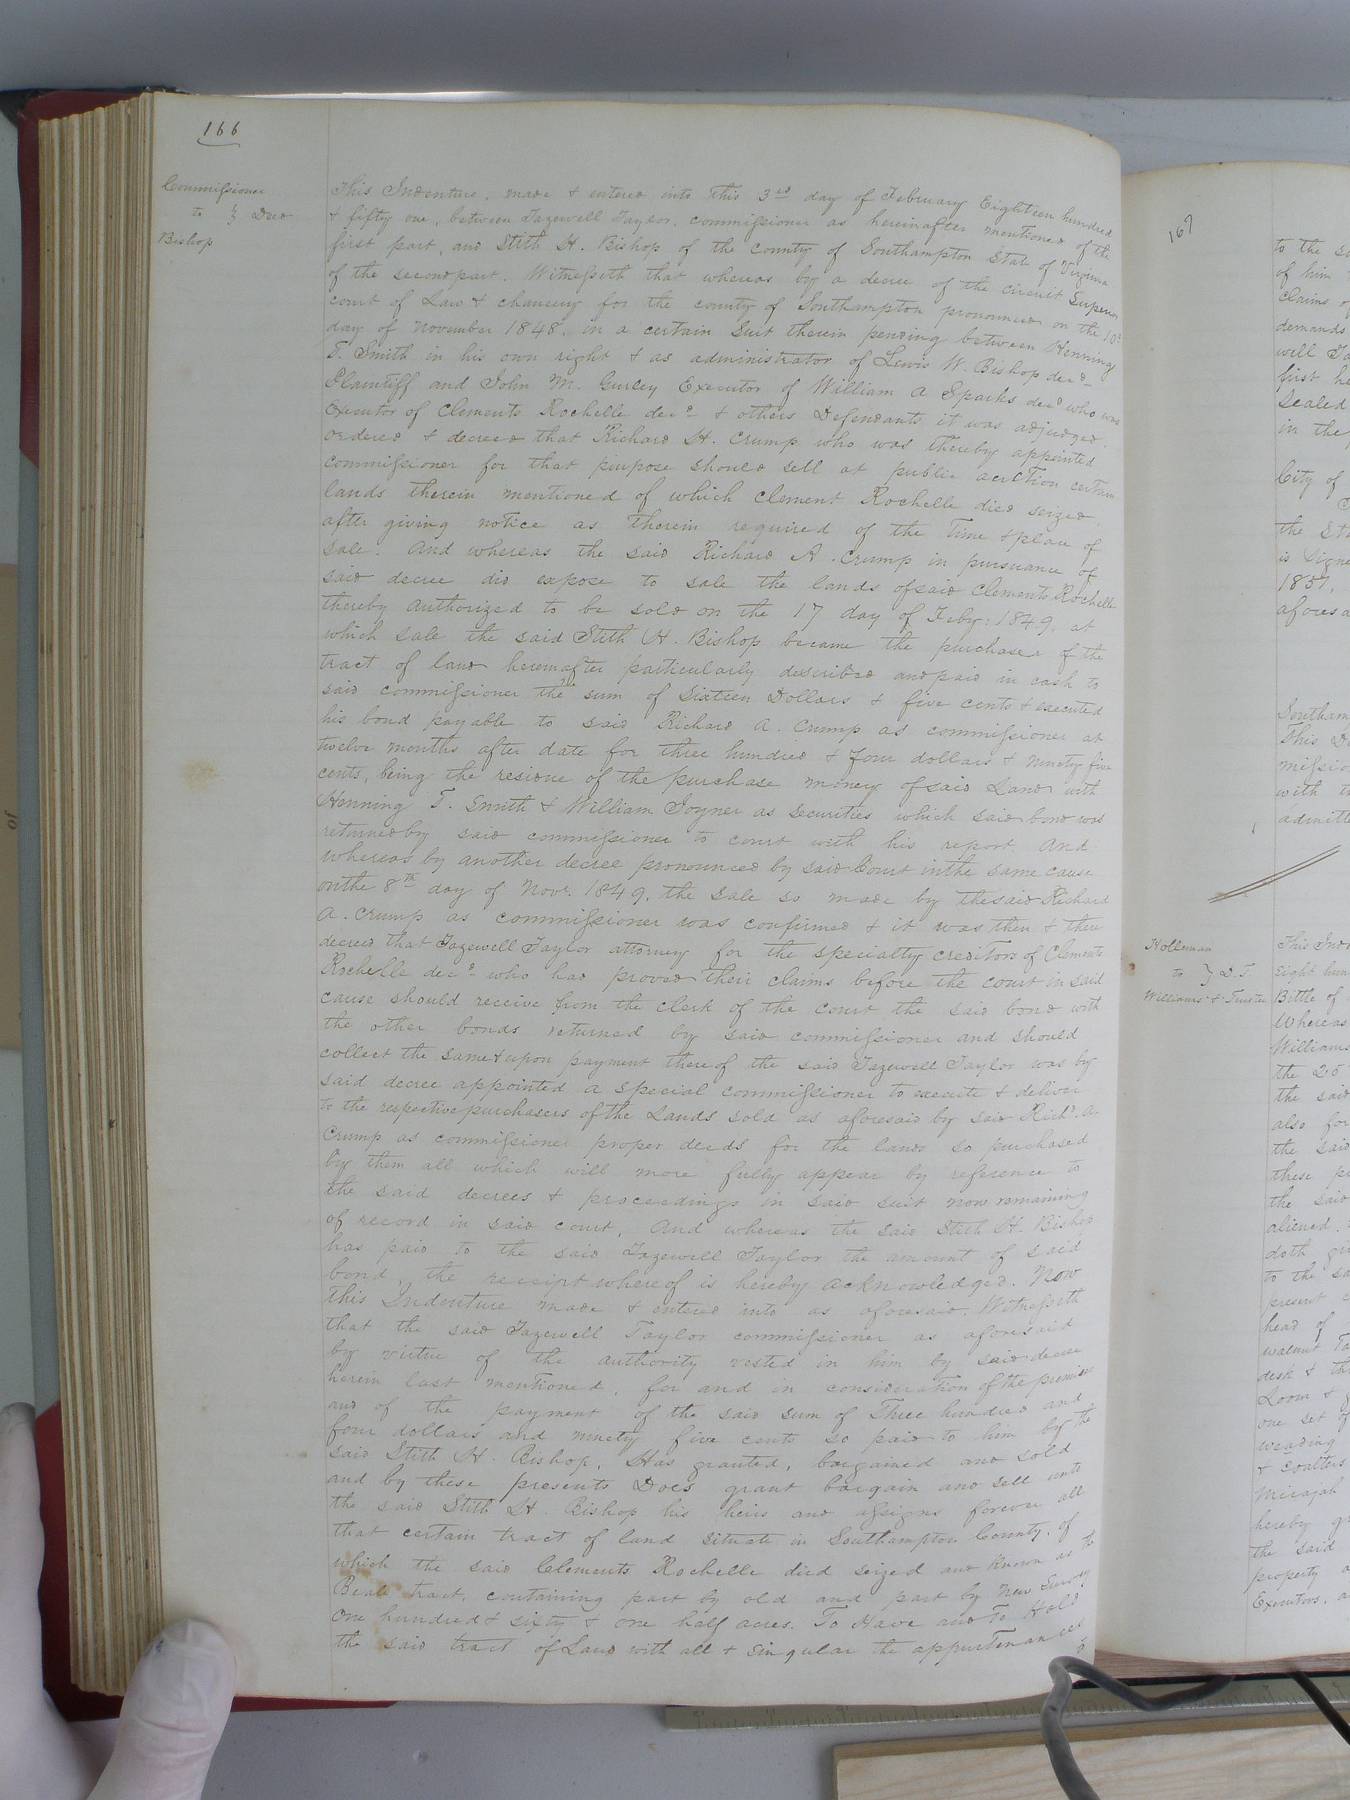 166
Commissioner
to } Deed
Bishop
This Indenture, made & entered into this 3rd day of February Eighteen hundred
& fifty one, between Tazewell Taylor, commissioner as hereinafter mentioned of the
first part, and Stith H. Bishop of the County of Southampton State of Virginia
of the second part. Witnesseth that whereas by a decree of the circuit Superior
court of Law & chancery for the county of Southampton pronounced on the 10th
day of November 1848, in a certain Suit therein pending between Henning
T. Smith in his own right & as administrator of Lewis W. Bishop decd
Plaintiff and John M. Gurley Executor of William A Sparks decd who was
Executor of Clements Rochelle decd & others Defendants it was adjudged
ordered & decreed that Richard H. Crump who was thereby appointed
commissioner for that purpose should sell at public auction certain
lands therein mentioned of which Clement Rochelle died seized,
after giving notice as therein required of the time & place of
sale. And whereas the said Richard A. Crump in pursuance of
said decree did expose to sale the lands of said Clements Rochelle
thereby authorized to be sold on the 17 day of Feby: 1849, at
which sale the said Stith H. Bishop became the purchaser of the
tract of land hereinafter particularly described and paid in cash to
said commissioner the sum of Sixteen Dollars & five cents & executed
his bond payable to said Richard A. Crump as commissioner at
twelve months after date for three hundred & four dollars & ninety five
cents, being the residue of the purchase money of said Land with
Henning T. Smith & William Joyner as securities which said bond was
returned by said commissioner to court with his report And
whereas by another decree pronounced by said Court in the same cause
on the 8th day of Novr. 1849, the sale so made by the said Richard
A. Crump as commissioner was confirmed & it was then & there
decreed that Tazewell Taylor attorney for the specialty creditors of Clements
Rochelle decd who had proved their claims before the court in said
cause should receive from the clerk of the court the said bond with
the other bonds returned by said commissioner and should
collect the same & upon payment thereof the said Tazewell Taylor was by
said decree appointed a special commissioner to execute & deliver
to the respective purchasers of the Lands sold as aforesaid by said Richd. A.
Crump as commissioner proper deeds for the lands so purchased
by them all which will more fully appear by reference to
the said decrees & proceedings in said suit now remaining
of record in said court, And whereas the said Stith H. Bishop
has paid to the said Tazewell Taylor the amount of said
bond, the receipt whereof is hereby acknowledged. Now
this Indenture made & entered into as aforesaid, Witnesseth
that the said Tazewell Taylor commissioner as aforesaid
by virtue of the authority vested in him by said decree
herein last mentioned, for and in consideration of the premises
and of the payment of the said sum of Three hundred and
four dollars and ninety five cents so paid to him by the
said Stith H. Bishop, Has granted, bargained and sold
and by these presents Does grant bargain and sell unto
the said Stith H. Bishop his heirs and assigns forever all
that certain tract of land situate in Southampton County, of
which the said Clements Rochelle died seized and known as the
Beale tract, containing part by old and part by new Survey
One hundred & sixty & one half acres. To Have and To Hold
the said tract of Land with all & singular the appurtenances
167
to the
of him
claims
demands
well
first
Sealed
in the
City of
the
is
1851,
aforesa
Southam
This
missio
with
admitte
Holleman
to } D. T.
Williams & Trustee
This Inde
Eight hun
Bittle of
Whereas
Williams
the 25
the said
also for
the said
these
the said
aliened
doth
to the
present
head of
walnut
desk &
Loom &
one set of
weading
& coalters
Micajah
hereby
the said
property
Executors,